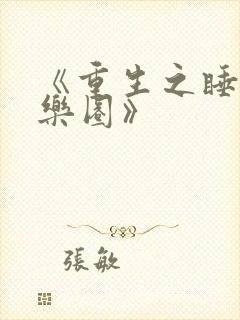 《重生之睡
樂園》
張敏